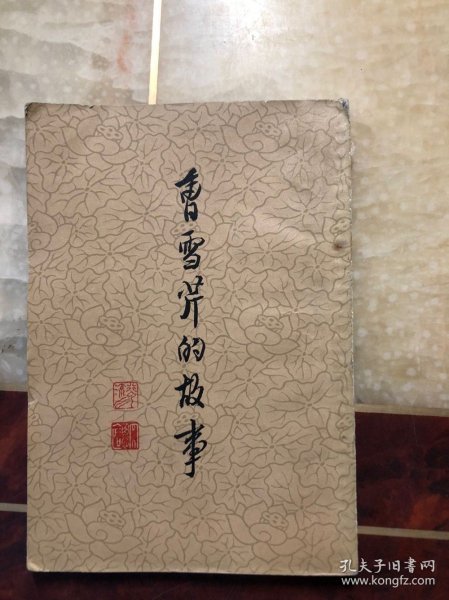 曹雪芹的故事
孔夫子旧书网
www.kongfz.com